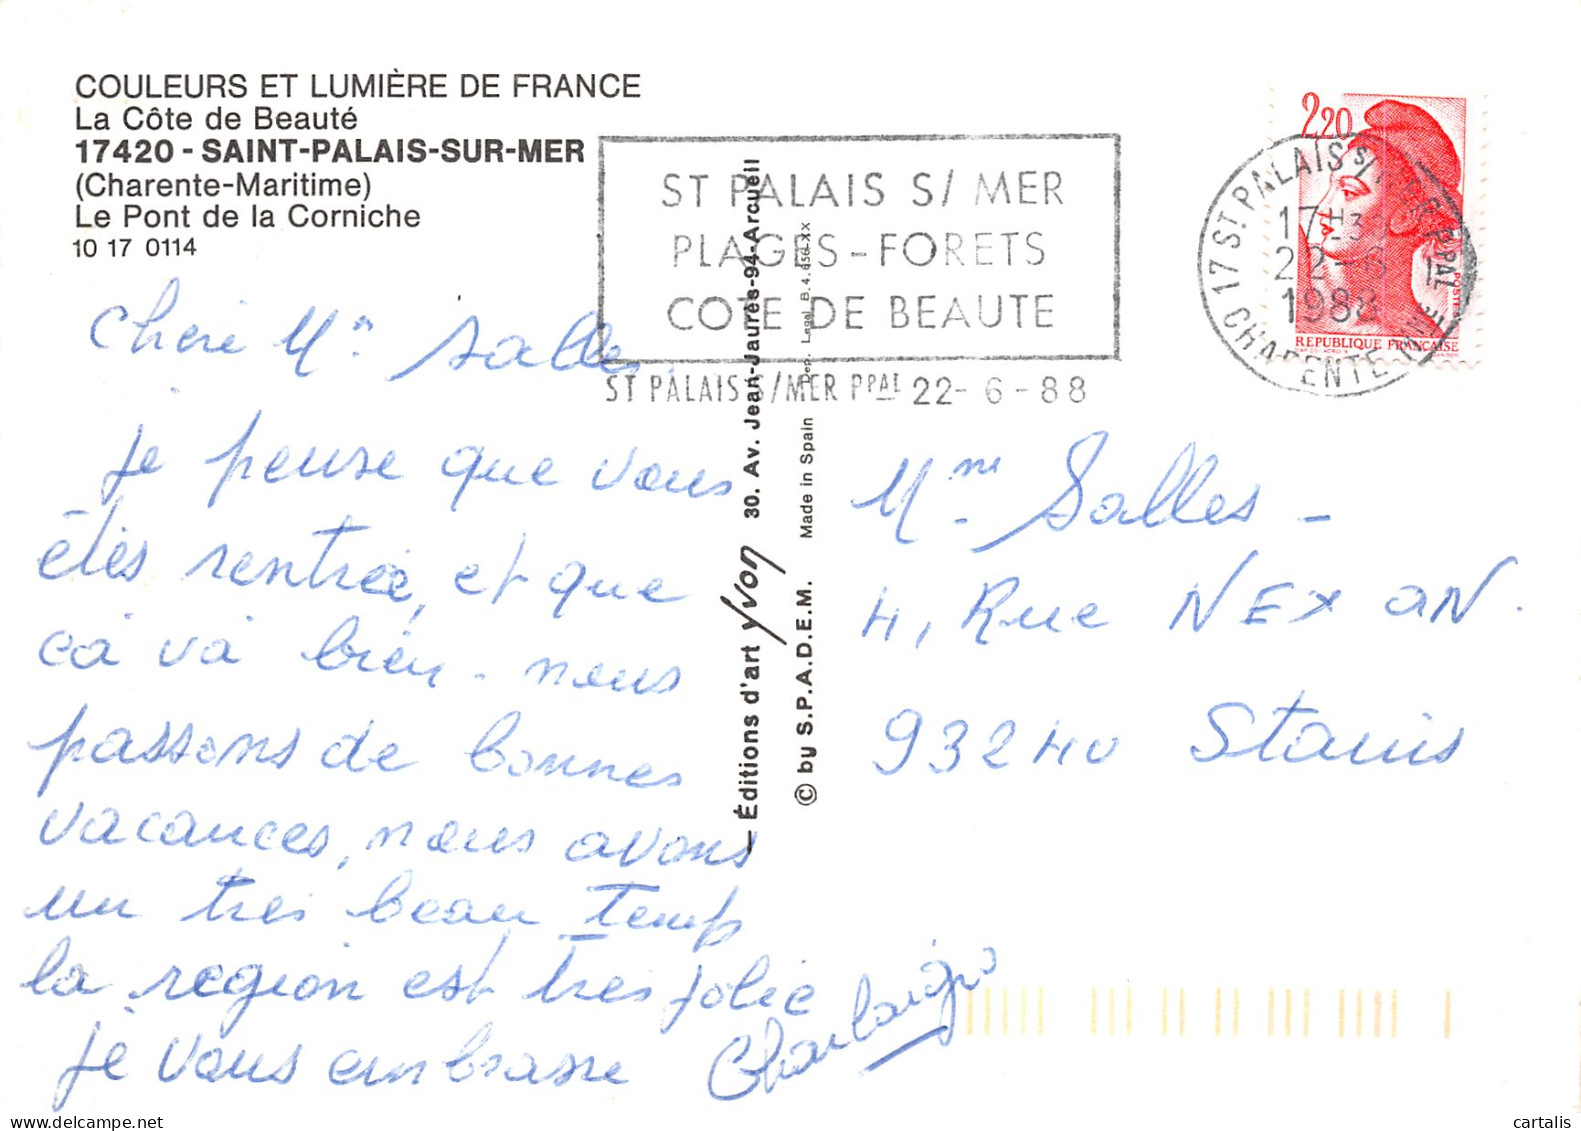 COULEURS ET LUMIÈRE DE FRANCE
La Côte de Beauté
17420 - SAINT-PALAIS-SUR-MER
(Charente-Maritime)
Le Pont de la Corniche
10 17 0114
ST PALAIS S/ MER
PLAGES - FORETS
COTE DE BEAUTE
ST PALAIS S/MER PPAL 22- 6 - 88
2,20
RÉPUBLIQUE FRANÇAISE
17 ST PALAIS S/MER PPAL
CHARENTE MME
22-6
1988
Chère Mme Salles
je pense que vous
êtes rentrée, et que
ça va bien - nous
passons de bonnes
vacances, nous avons
un tres beau temp
la region est tres jolie
je vous embrasse
Mme Salles -
4, Rue
93240 Stains
— Éditions d'art Yvon 30. Av. Jean-Jaurès-94-Arcueil
© by S.P.A.D.E.M. Made in Spain Dep. Legal B. 4.656-XX
cartalis